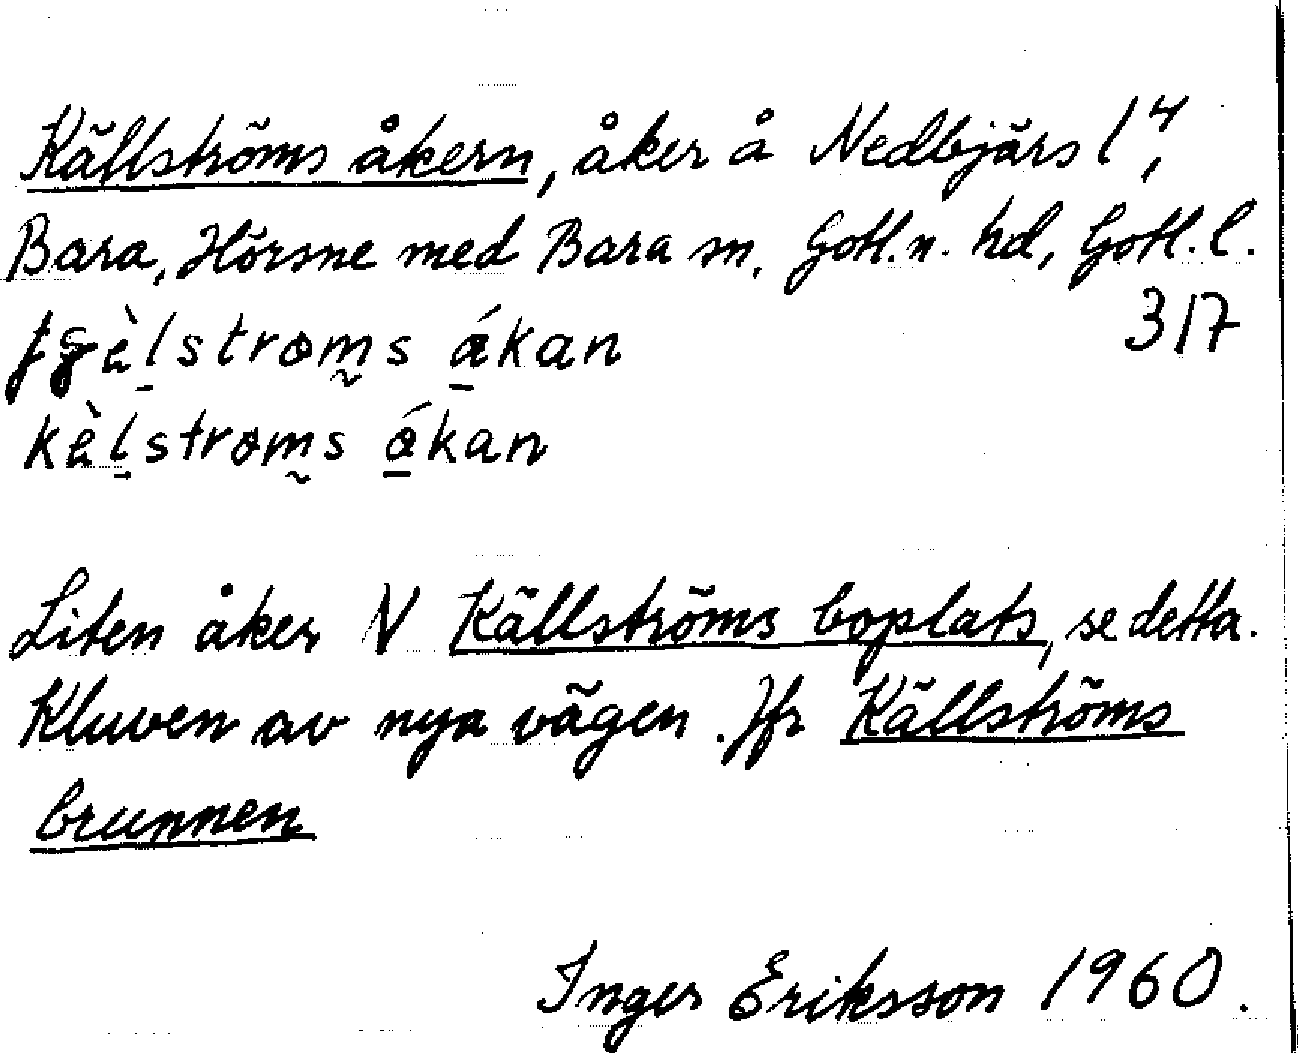 Källströms åkern, åker å Nedbjärs 1⁴,
Bara, Hörsne med Bara sn, Gotl. n. hd, Gotl. l.
317
kèlstroms åkan
Liten åker N Källströms boplats, se detta.
Kluven av nya vägen. Jfr Källströms
brunnen
Inger Eriksson 1960.